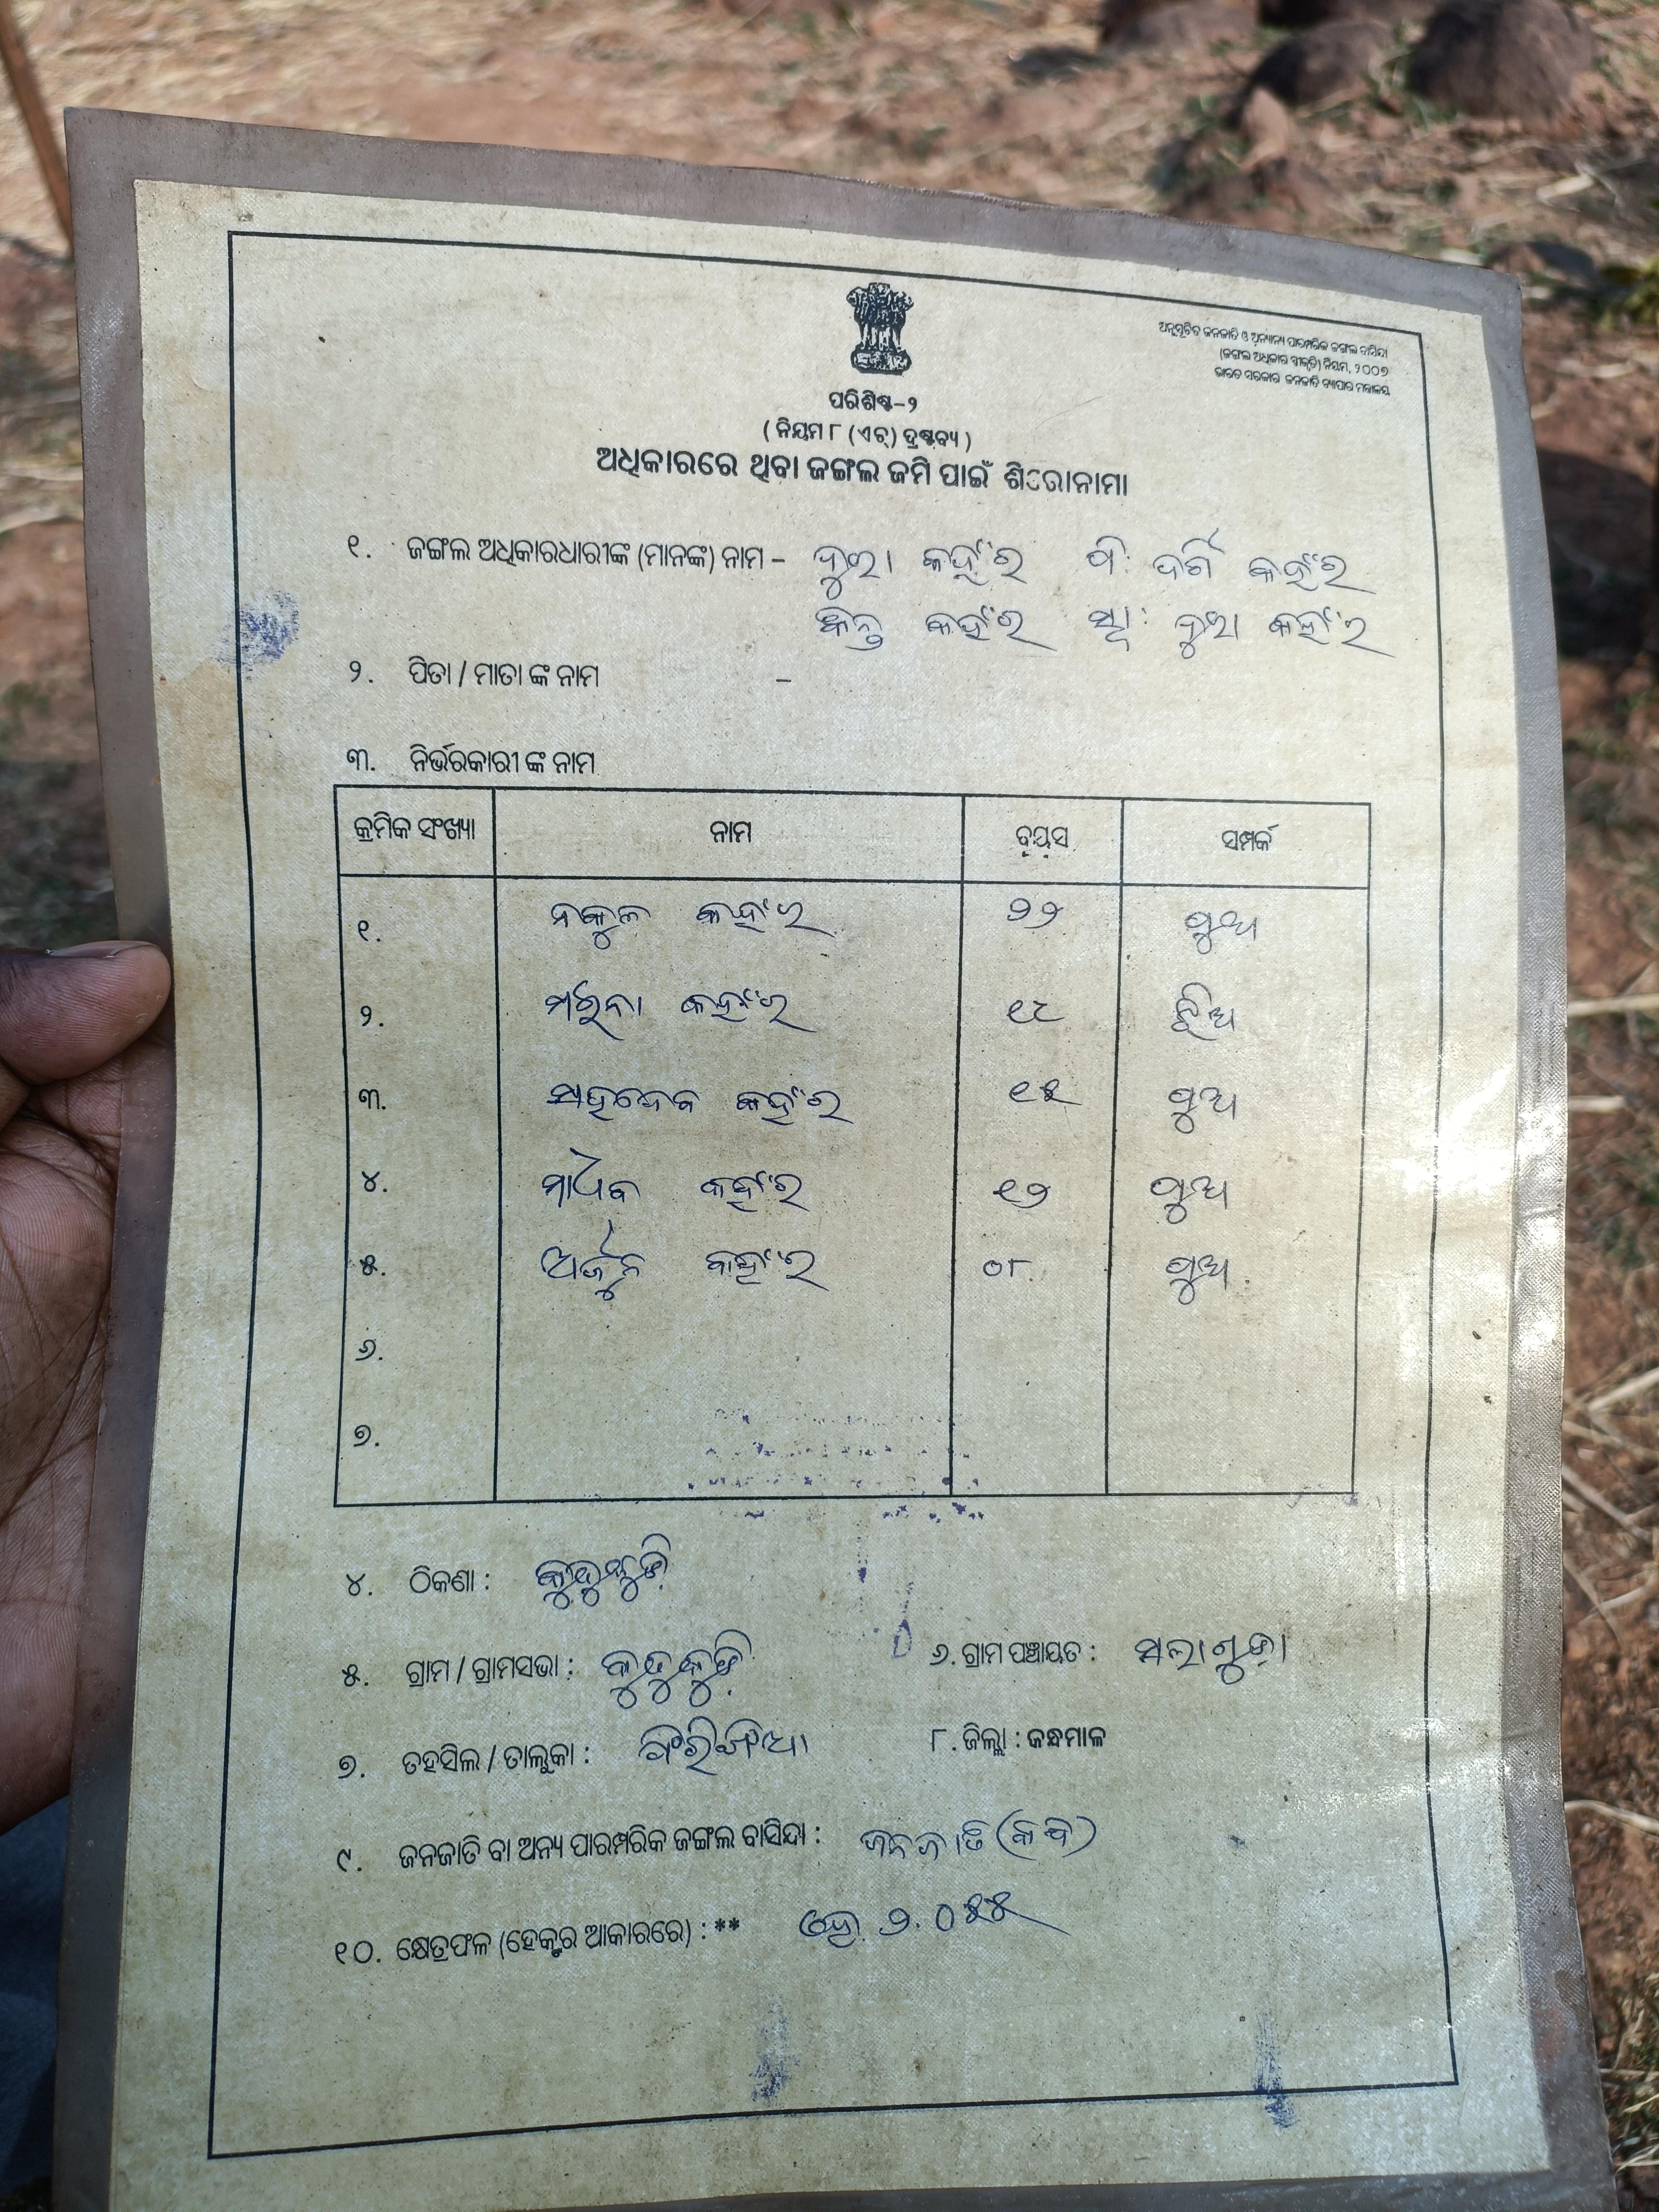 ଅନୁସୂଚିତ ଜନଜାତି ଓ ଅନ୍ୟାନ୍ୟ ପାରମ୍ପରିକ ଜଙ୍ଗଲ ବାସିନ୍ଦା
(ଜଙ୍ଗଲ ଅଧିକାର ସ୍ୱୀକୃତି) ନିୟମ, ୨୦୦୭
ଭାରତ ସରକାର ଜନଜାତି ବ୍ୟାପାର ମନ୍ତ୍ରାଳୟ
ପରିଶିଷ୍ଟ-୨
( ନିୟମ ୮ (ଏଚ୍) ଦ୍ରଷ୍ଟବ୍ୟ )
ଅଧିକାରରେ ଥିବା ଜଙ୍ଗଲ ଜମି ପାଇଁ ଶିରୋନାମା
୧. ଜଙ୍ଗଲ ଅଧିକାରଧାରୀଙ୍କ (ମାନଙ୍କ) ନାମ – କହଁର ପି: କହଁର
କହଁର ସ୍ୱା: କହଁର
୨. ପିତା / ମାତା ଙ୍କ ନାମ –
୩. ନିର୍ଭରକାରୀ ଙ୍କ ନାମ
କ୍ରମିକ ସଂଖ୍ୟା ନାମ ବୟସ ସମ୍ପର୍କ
୧. ନକୁଳ କହଁର ୨୨ ପୁଅ
୨. କହଁର ୧୮ ଝିଅ
୩. ସହଦେବ କହଁର ୧୫ ପୁଅ
୪. ମାଧବ କହଁର ୧୨ ପୁଅ
୫. ଅର୍ଜୁନ କହଁର ୦୮ ପୁଅ
୬.
୭.
୪. ଠିକଣା :
୫. ଗ୍ରାମ / ଗ୍ରାମସଭା : ୬. ଗ୍ରାମ ପଞ୍ଚାୟତ :
୭. ତହସିଲ / ତାଲୁକା : ୮. ଜିଲ୍ଲା : କନ୍ଧମାଳ
୯. ଜନଜାତି ବା ଅନ୍ୟ ପାରମ୍ପରିକ ଜଙ୍ଗଲ ବାସିନ୍ଦା : ଜନଜାତି (କନ୍ଧ)
୧୦. କ୍ଷେତ୍ରଫଳ (ହେକ୍ଟର ଆକାରରେ) : ** ହେ. ୨.୦୫୫